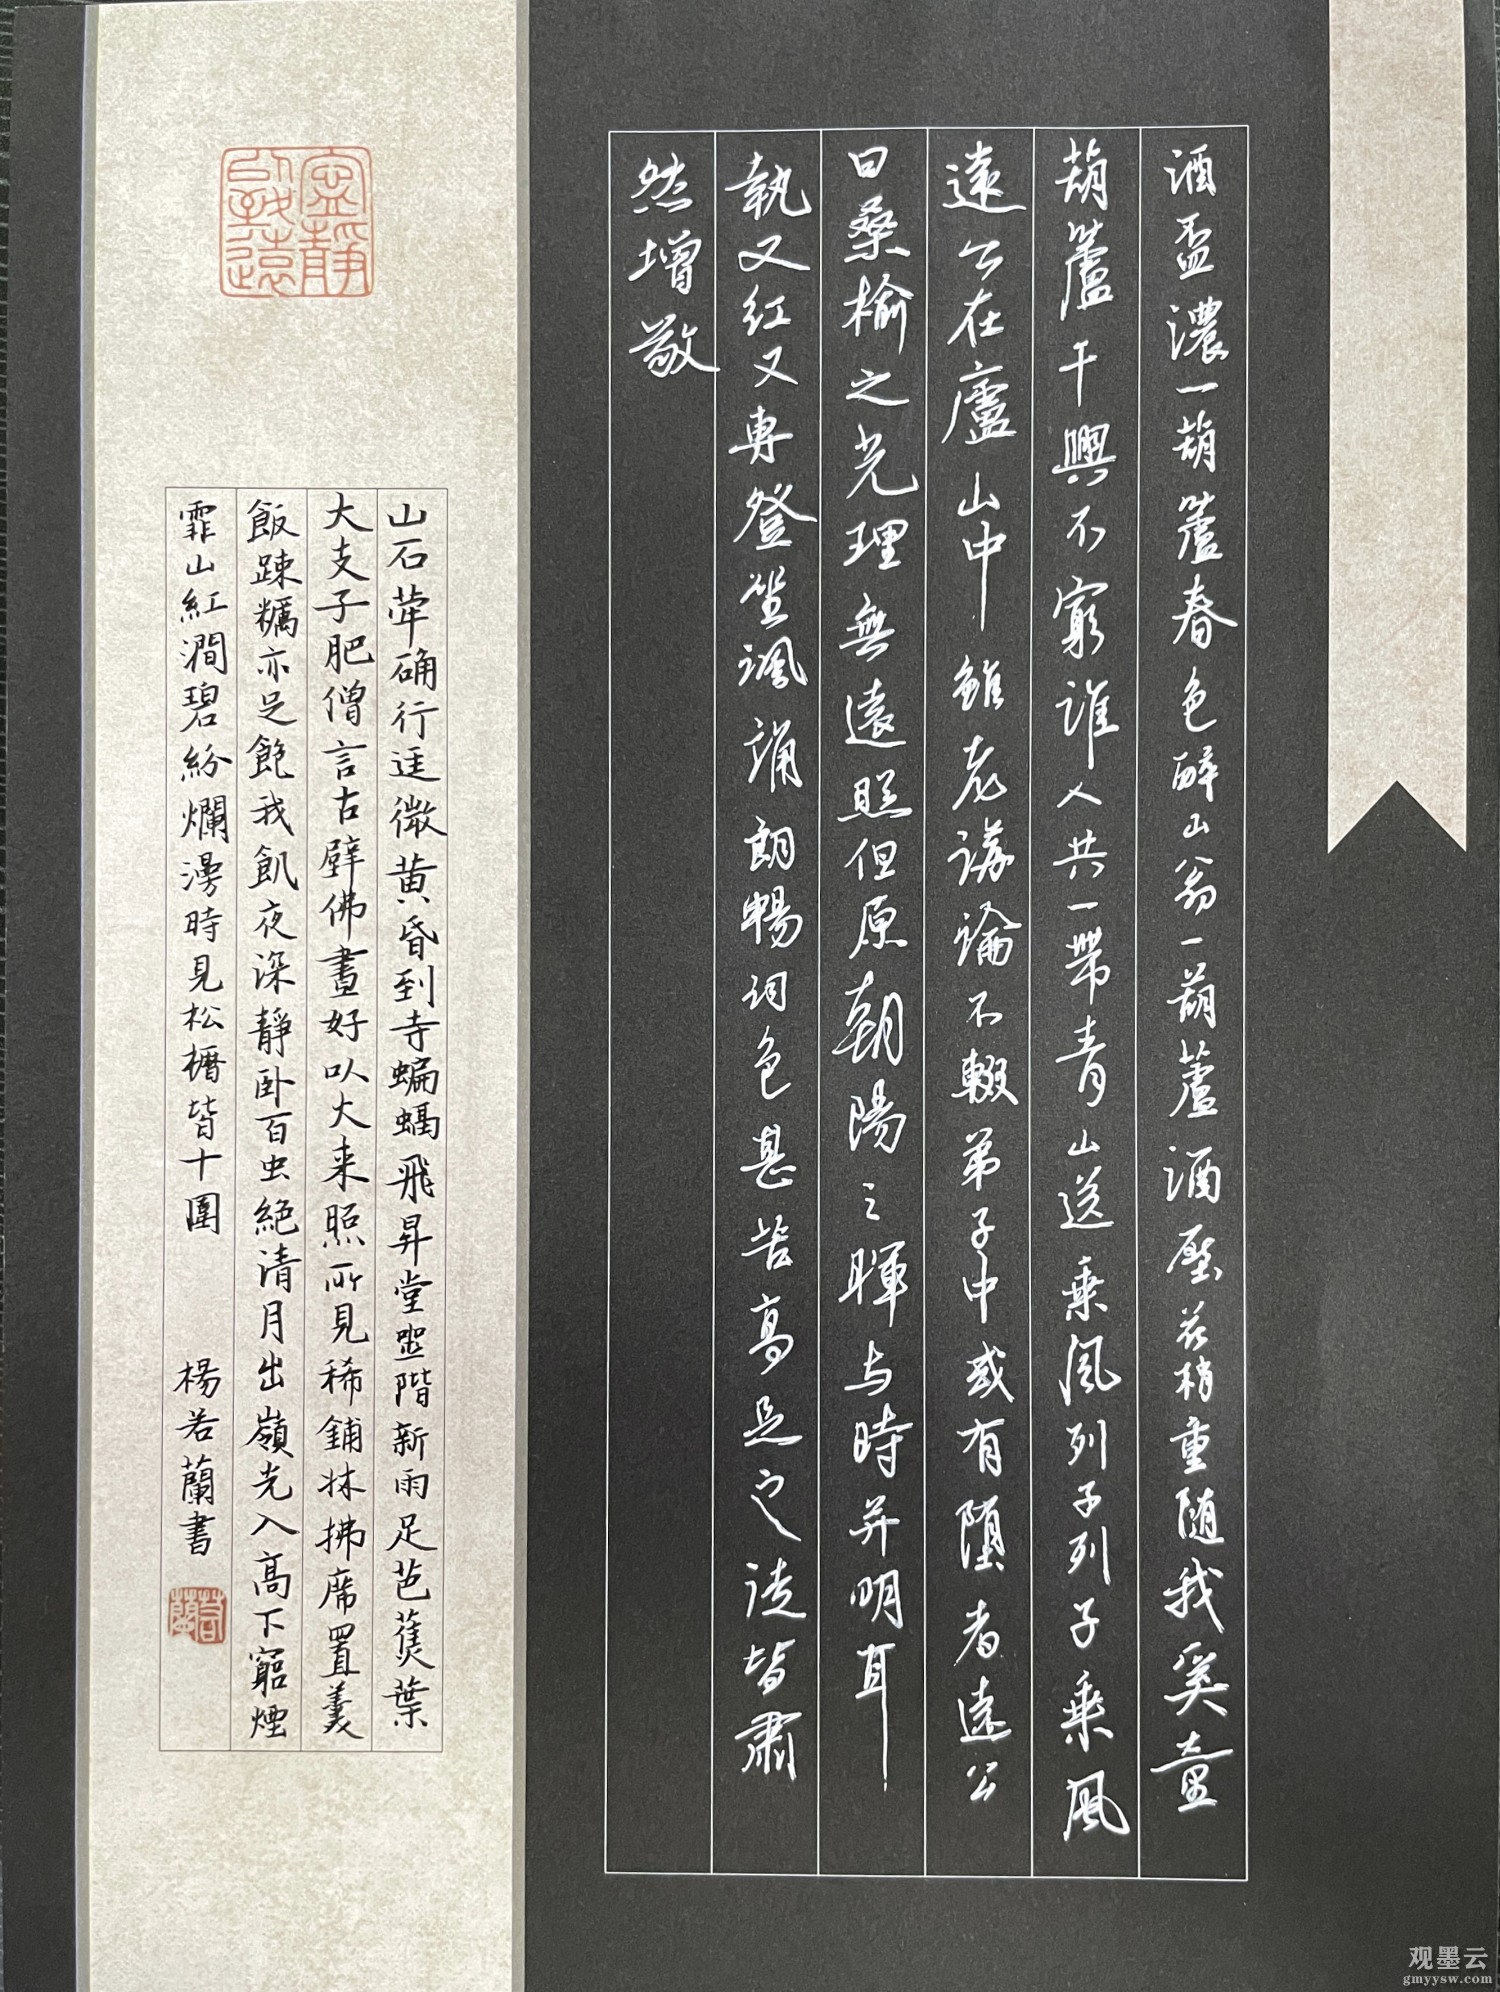 酒盃濃一葫蘆春色醉山翁一葫蘆酒壓花梢重随我奚童
葫蘆干興不窮誰人共一帶青山送乘風列子列子乘風
遠公在廬山中雖老講論不輟弟子中或有墮者遠公
曰桑榆之光理無遠照但原朝陽之暉与時并明耳
執又紅又專登坐諷誦朗暢词色甚苦高足之徒皆肅
然增敬
寧靜
致遠
山石犖确行逕微黄昏到寺蝙蝠飛昇堂坐階新雨足芭蕉葉
大支子肥僧言古壁佛畫好以大来照所見稀鋪牀拂席置羹
飯疎糲亦足飽我飢夜深靜卧百虫絕清月出嶺光入高下窮煙
霏山紅澗碧紛爛漫時見松櫪皆十圍 楊若蘭書
若蘭
观墨云
gmyysw.com